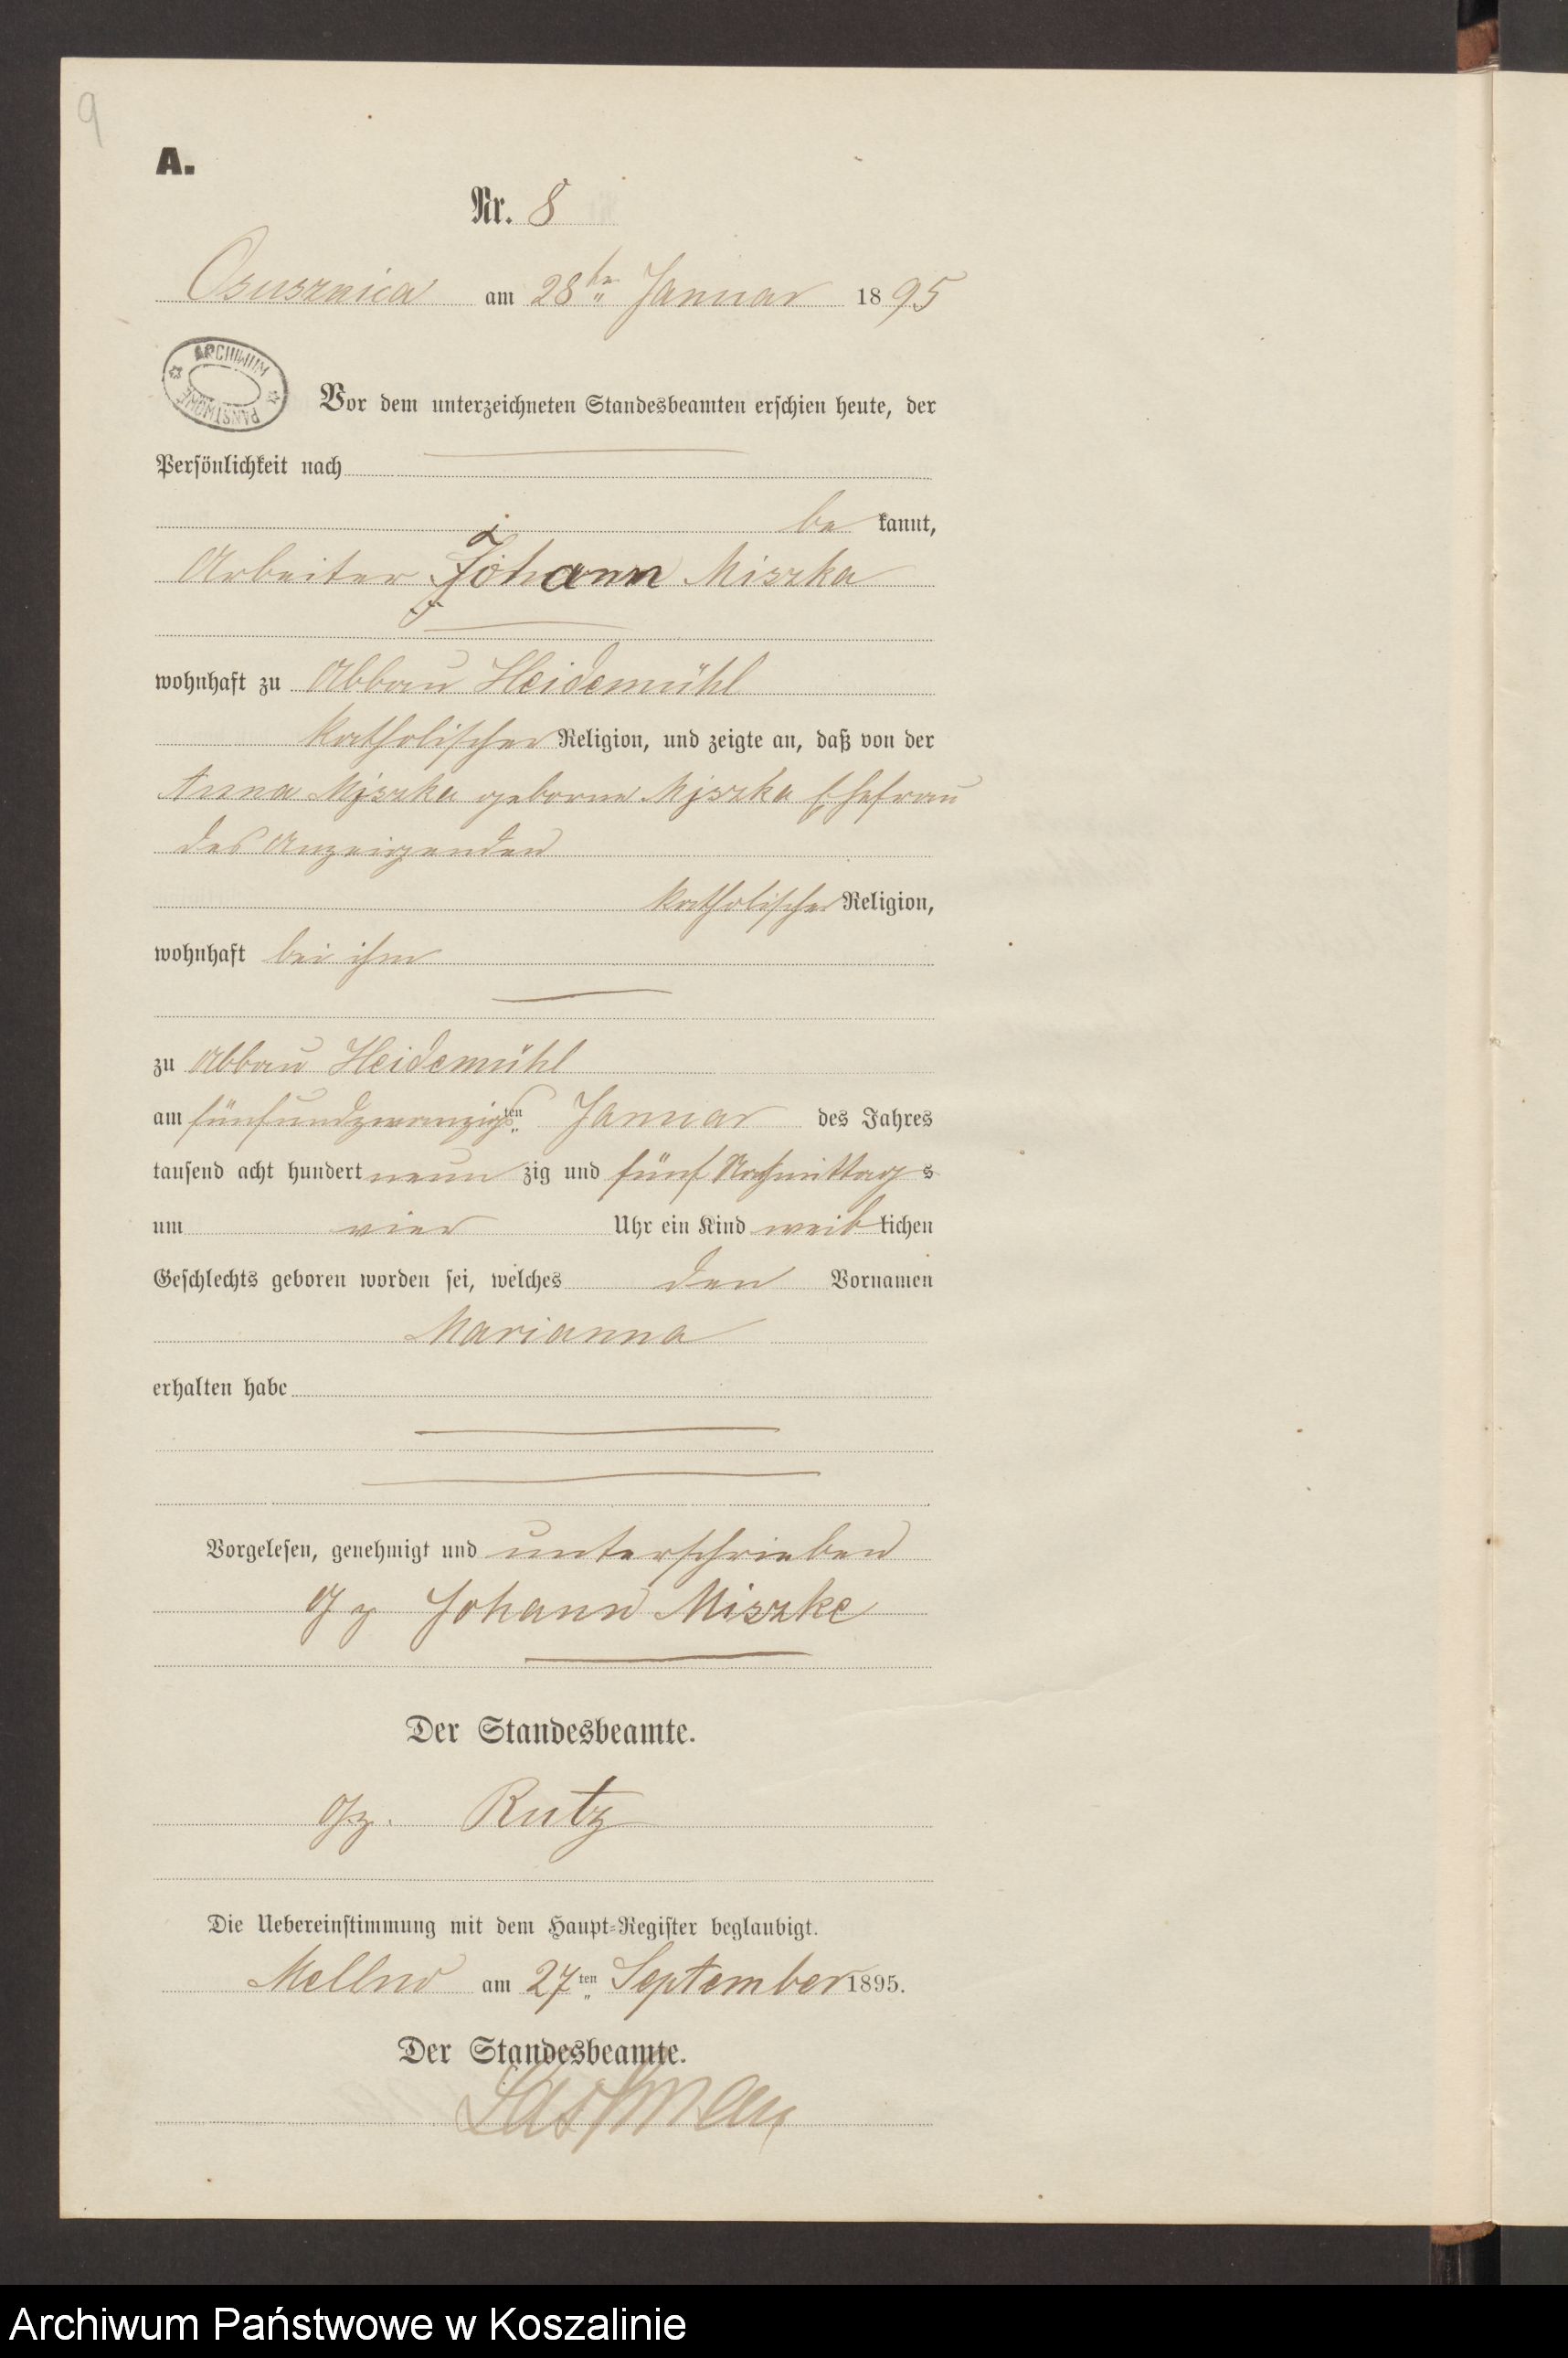 9
A.
Nr. 8
Osusznica am 28ten Januar 1895
ARCHIWUM PAŃSTWOWE
Vor dem unterzeichneten Standesbeamten erschien heute, der
Persönlichkeit nach
be kannt,
Arbeiter Johann Miszka
wohnhaft zu Abbau Heidemühl
katholischer Religion, und zeigte an, daß von der
Anna Miszka geborne Miszka Ehefrau
des Anzeigenden
katholischer Religion,
wohnhaft bei ihm
zu Abbau Heidemühl
am fünfundzwanzigsten Januar des Jahres
tausend acht hundert neun zig und fünf Nachmittags
um vier Uhr ein Kind weiblichen
Geschlechts geboren worden sei, welches den Vornamen
Marianna
erhalten habe
Vorgelesen, genehmigt und unterschrieben
gz Johann Miszke
Der Standesbeamte.
gz. Rutz
Die Uebereinstimmung mit dem Haupt-Register beglaubigt.
am 27ten September 1895.
Der Standesbeamte.
Archiwum Państwowe w Koszalinie